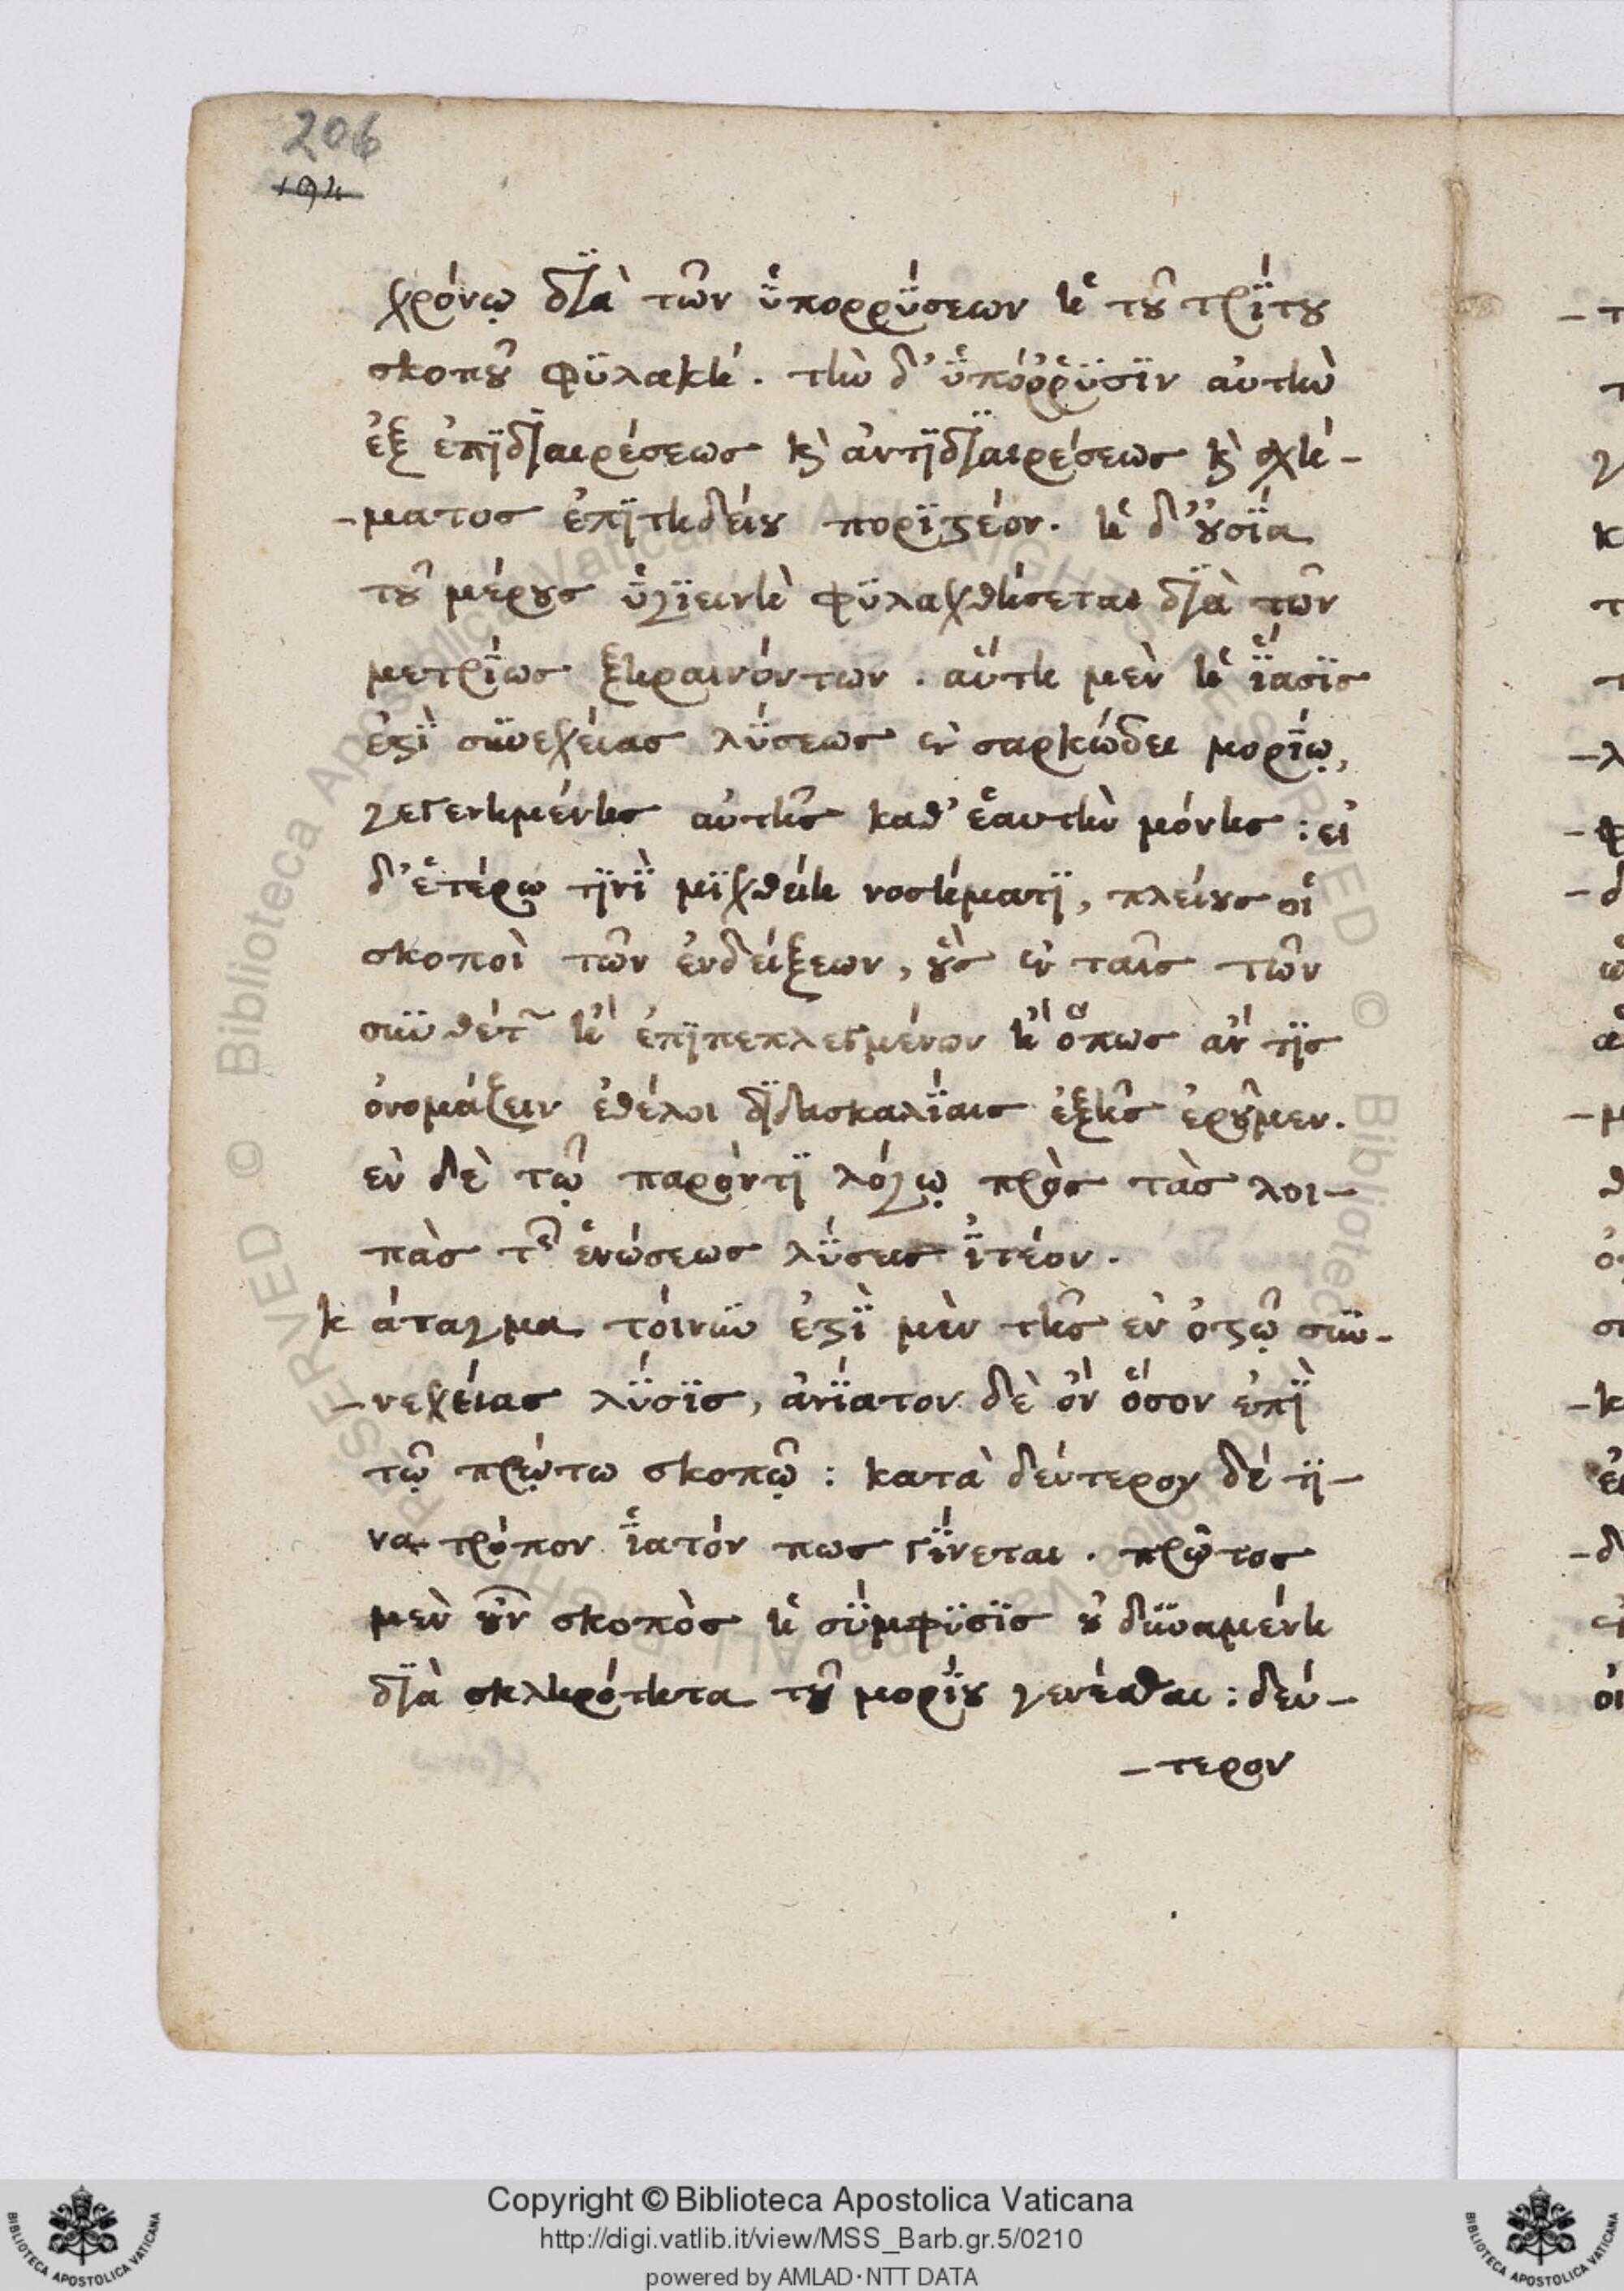 206
194
χρόνῳ διὰ τῶν ὑπορρύσεων ἡ τοῦ τρίτου
σκοποῦ φυλακή. τὴν δ' ὑπόρρυσιν αὐτὴν
ἐξ ἐπιδιαιρέσεως καὶ ἀντιδιαιρέσεως καὶ σχή-
-ματος ἐπιτηδείου ποριστέον. ἡ δ' οὐσία
τοῦ μέρους ὑγιεινὴ φυλαχθήσεται διὰ τῶν
μετρίως ξηραινόντων. αὕτη μὲν ἡ ἴασις
ἐστὶ συνεχείας λύσεως ἐν σαρκώδει μορίῳ,
γεγενημένης αὐτῆς καθ' ἑαυτὴν μόνης: εἰ
δ' ἑτέρῳ τινὶ μιχθείη νοσήματι, πλείους οἱ
σκοποὶ τῶν ἐνδείξεων, οὓς ἐν ταῖς τῶν
συνθέτων ἢ ἐπιπεπλεγμένων ἢ ὅπως ἄν τις
ὀνομάζειν ἐθέλοι διδασκαλίαις ἑξῆς ἐροῦμεν.
ἐν δὲ τῷ παρόντι λόγῳ πρὸς τὰς λοι-
πὰς τῆς ἑνώσεως λύσεις ἰτέον.
κάταγμα τοίνυν ἐστὶ μὲν τῆς ἐν ὀστῷ συν-
-νεχείας λύσις, ἀνίατον δὲ ὂν ὅσον ἐπὶ
τῷ πρώτῳ σκοπῷ: κατὰ δεύτερον δέ τι-
να τρόπον ἰατόν πως γίνεται. πρῶτος
μὲν οὖν σκοπὸς ἡ σύμφυσις οὐ δυναμένη
διὰ σκληρότητα τοῦ μορίου γενέσθαι: δεύ-
-τερον
Copyright © Biblioteca Apostolica Vaticana
http://digi.vatlib.it/view/MSS_Barb.gr.5/0210
powered by AMLAD · NTT DATA